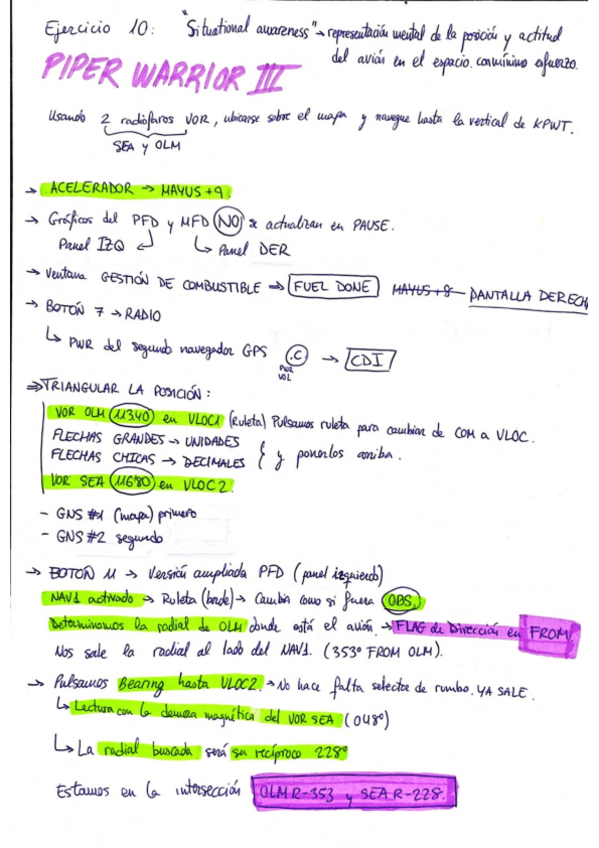 Ejercicio 10: "Situational awareness" → representación mental de la posición y actitud
del avión en el espacio con mínimo esfuerzo.
PIPER WARRIOR III
Usando 2 radiofaros VOR, ubicarse sobre el mapa y navegue hasta la vertical de KPWT.
SEA y OLM
→ ACELERADOR → MAYUS + 9.
→ Gráficos del PFD y MFD NO se actualizan en PAUSE.
Panel IZQ ↲ ↳ Panel DER
→ Ventana GESTIÓN DE COMBUSTIBLE ⇒ FUEL DONE MAYUS+8 PANTALLA DERECHA
→ BOTÓN 7 → RADIO
↳ PWR del segundo navegador GPS .C → CDI
PWR
VOL
⇒ TRIANGULAR LA POSICIÓN:
VOR OLM 113.40 en VLOC1 (Ruleta) Pulsamos ruleta para cambiar de COM a VLOC.
FLECHAS GRANDES → UNIDADES
FLECHAS CHICAS → DECIMALES } y ponerlos arriba.
VOR SEA 116.80 en VLOC2.
- GNS #1 (mapa) primero
- GNS #2 segundo
→ BOTÓN 11 → Versión ampliada PFD (panel izquierdo)
NAV1 activado → Ruleta (borde) → Cambia como si fuera OBS.
Determinamos la radial de OLM donde está el avión. → FLAG de Dirección en FROM.
Nos sale la radial al lado del NAV1. (353º FROM OLM).
→ Pulsamos Bearing hasta VLOC2. → No hace falta selector de rumbo. YA SALE.
↳ Lectura con la demora magnética del VOR SEA (048º)
↳ La radial buscada será su recíproco 228º
Estamos en la intersección OLM R-353 y SEA R-228.